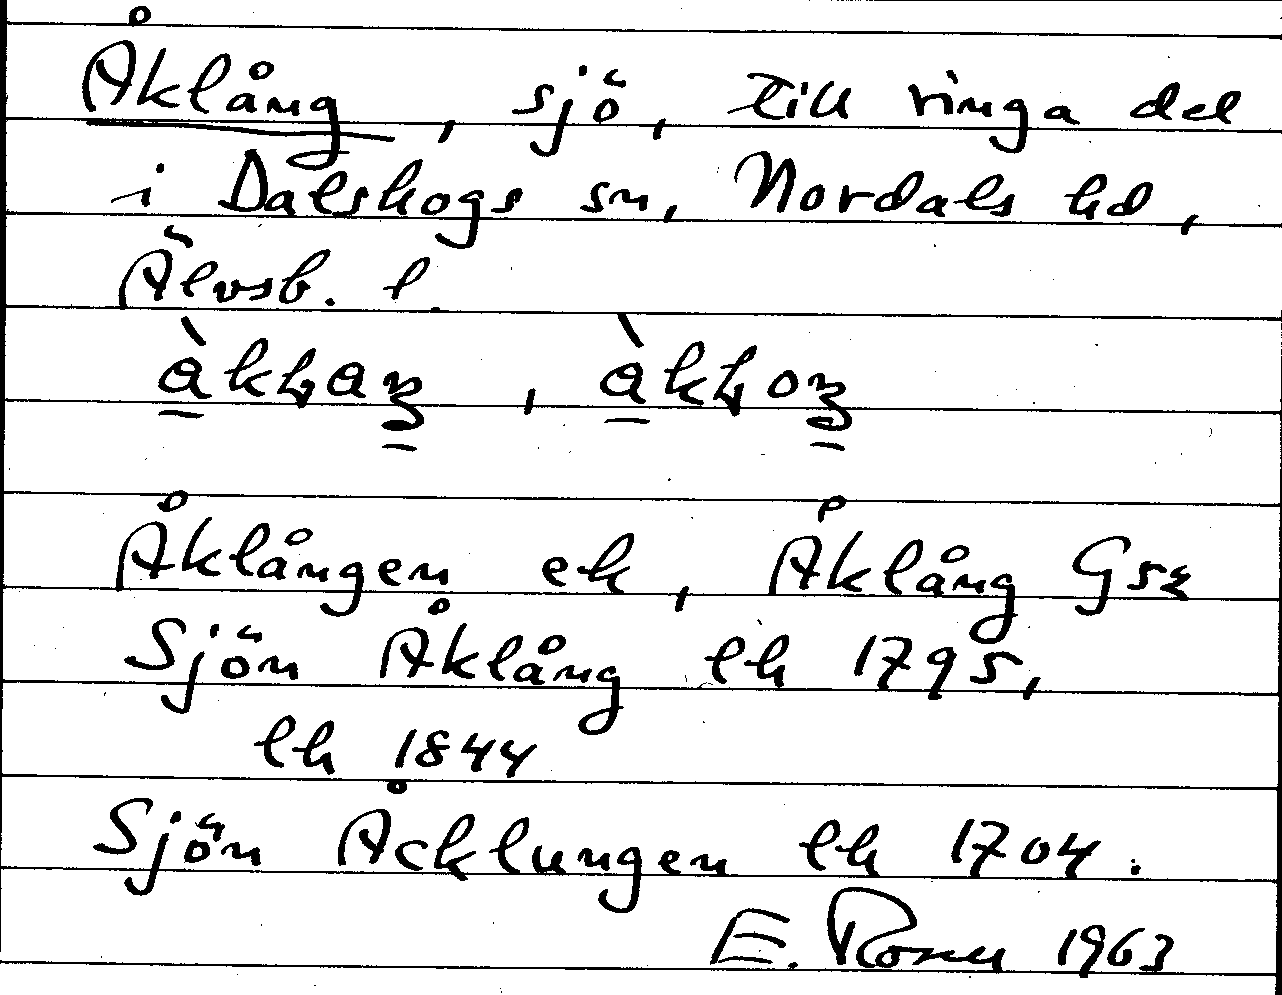 Åklång, sjö, till ringa del
i Dalskogs sn, Nordals hd,
Älvsb. l.
Åklången ek, Åklång Gsk
Sjön Åklång lh 1795,
lh 1844
Sjön Åcklungen lh 1704.
E. Rosell 1963